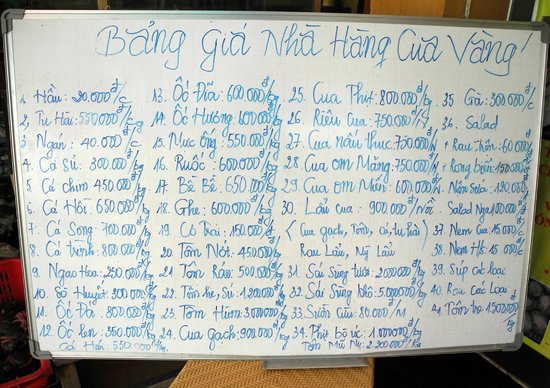 Bảng giá Nhà Hàng Cua Vàng
1. Hàu: 20.000đ/c
2. Tu Hài: 550.000đ/kg
3. Ngán: 40.000đ/c
4. Cá Sủ: 300.000đ/kg
5. Cá chim 450.000đ/kg
6. Cá Hói 650.000đ/kg
7. Cá Song: 700.000đ/kg
8. Cá trình: 800.000đ/kg
9. Ngao Hoa: 250.000đ/kg
10. Sò Huyết: 300.000đ/kg
11. Ốc Đá: 800.000đ/kg
12. Ốc len: 350.000đ/kg
13. Ốc Đĩa: 600.000đ/kg
14. Ốc Hương: 600.000đ/kg
15. Mực Ống: 550.000đ/kg
16. Ruốc: 600.000đ/kg
17. Bề Bề: 650.000đ/kg
18. Ghẹ: 600.000đ/kg
19. Cò Trai: 150.000đ
20. Tôm Nớt: 450.000đ/kg
21. Tôm Rảo: 500.000đ/kg
22. Tôm he, Sú: 1.200.000đ/kg
23. Tôm Hùm: 3000.000đ/kg
24. Cua gạch: 900.000đ/kg
25. Cua Thịt: 800.000đ/kg
26. Riêu Cua: 750.000đ/N
27. Cua nấu thục 750.000đ/N
28 Cua om Măng: 750.000đ/N
29. Cua om Miến: 600.000đ/N
30. Lẩu cua: 900.000đ/nồi
(Cua gạch, Tôm, cá, tu hài)
Rau Lẩu, Mỳ Lẩu
31. Sái Sùng tươi: 2000.000đ/kg
32. Sái Sùng khô: 5.000.000đ/kg
33. Sườn Cừu: 80.000/M
34. Thịt Bò Úc: 1.000.000đ/kg
Tôm Mũ Ni: 2.200.000đ/kg
35 Gà: 300.000đ/c
36. Salad
+ Rau Trộn: 60.000đ
+ Rong Biển: 150.000đ
+ Nộm Sứa: 120.000
Salad Nga 100.000đ
37. Nem Cua 15.000/c
38. Nem Hs. 15.000/c
39. Súp các loại
40. Rau các loại
41. Tôm tộ 1500.000đ/kg